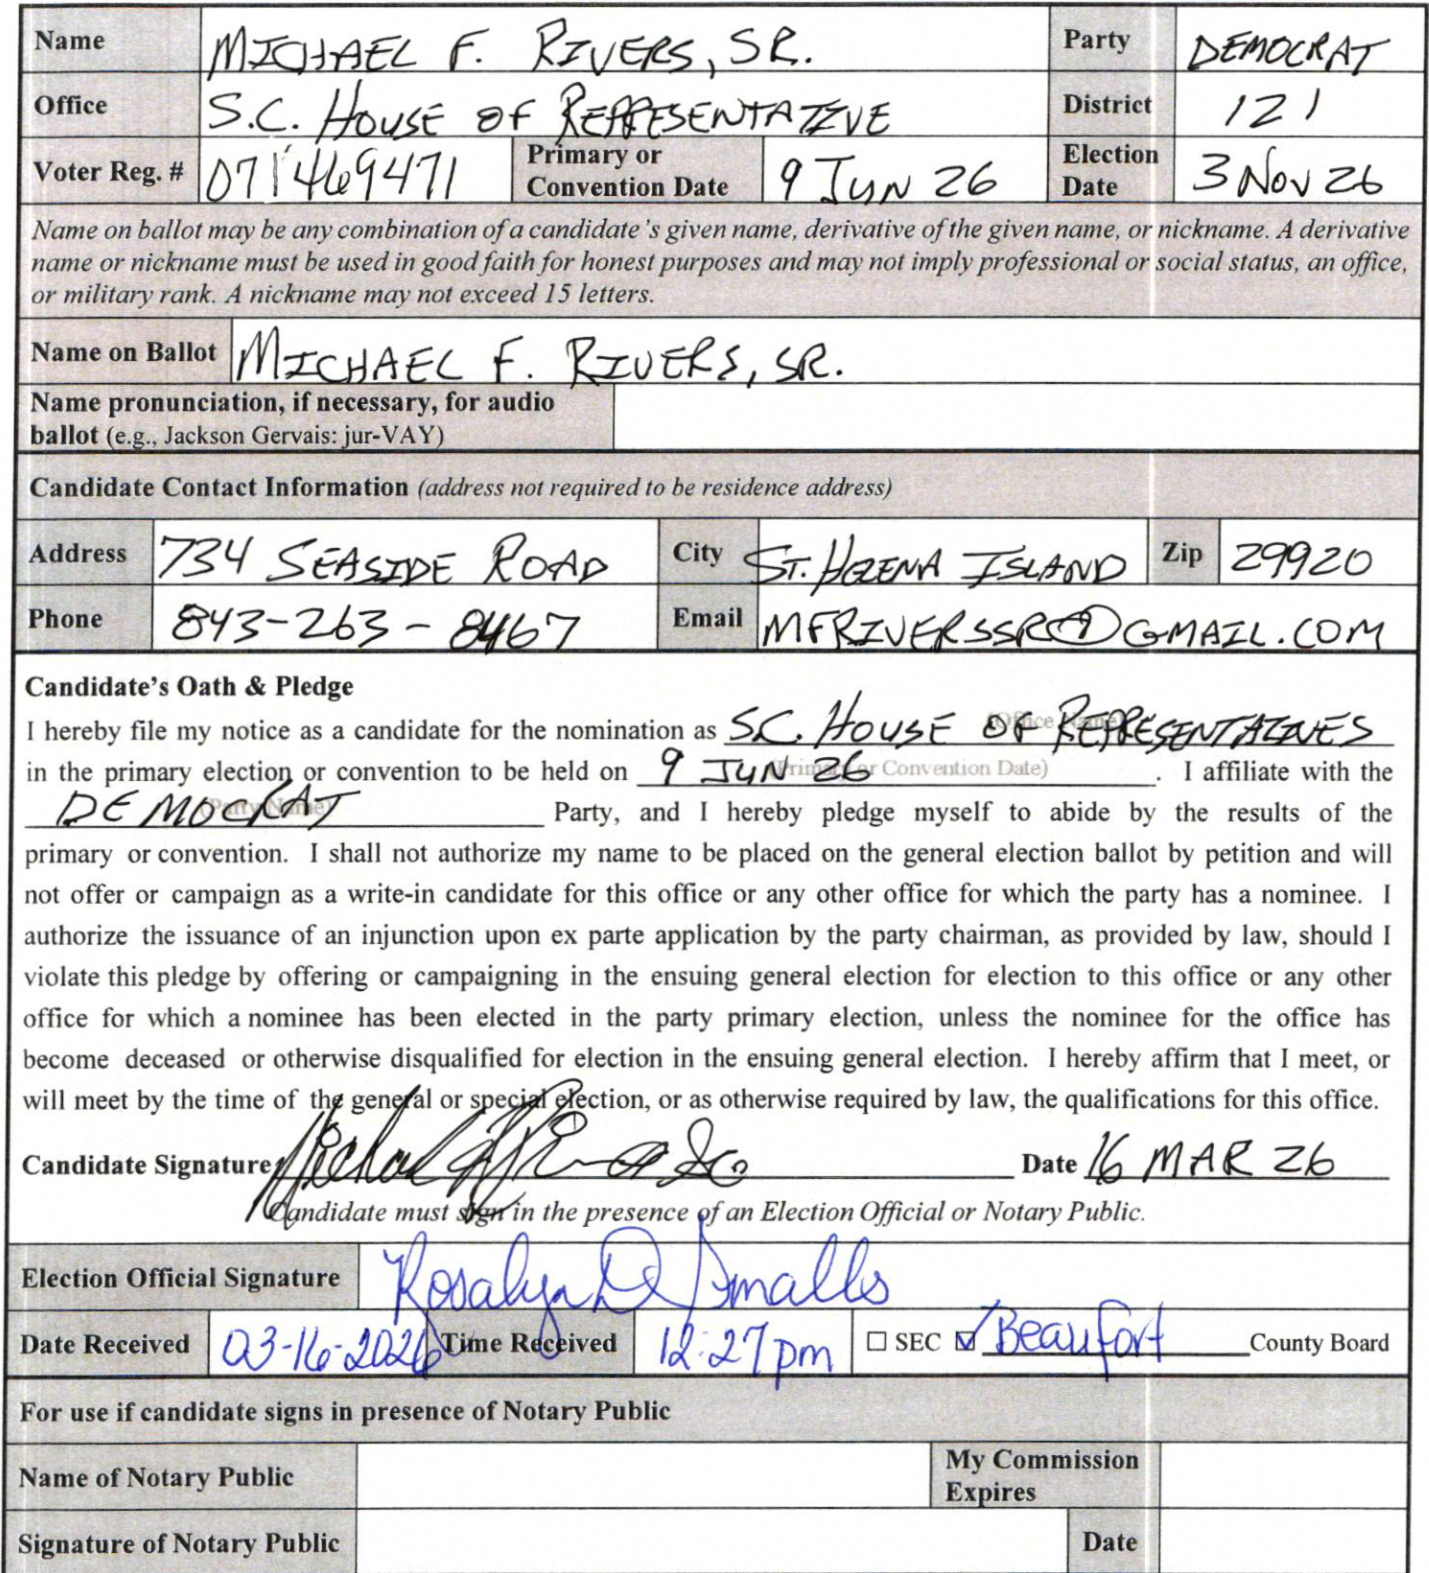 Name MICHAEL F. RIVERS, SR. Party DEMOCRAT
Office S.C. HOUSE OF REPRESENTATIVE District 121
Voter Reg. # 071469471 Primary or Convention Date 9 JUN 26 Election Date 3 NOV 26
Name on ballot may be any combination of a candidate's given name, derivative of the given name, or nickname. A derivative
name or nickname must be used in good faith for honest purposes and may not imply professional or social status, an office,
or military rank. A nickname may not exceed 15 letters.
Name on Ballot MICHAEL F. RIVERS, SR.
Name pronunciation, if necessary, for audio
ballot (e.g., Jackson Gervais: jur-VAY)
Candidate Contact Information (address not required to be residence address)
Address 734 SEASIDE ROAD City ST. HELENA ISLAND Zip 29920
Phone 843-263-8467 Email MFRIVERSSR@GMAIL.COM
Candidate's Oath & Pledge
I hereby file my notice as a candidate for the nomination as S.C. HOUSE OF REPRESENTATIVES (Office Name)
in the primary election or convention to be held on 9 JUN 26 (Primary or Convention Date). I affiliate with the
DEMOCRAT (Party Name) Party, and I hereby pledge myself to abide by the results of the
primary or convention. I shall not authorize my name to be placed on the general election ballot by petition and will
not offer or campaign as a write-in candidate for this office or any other office for which the party has a nominee. I
authorize the issuance of an injunction upon ex parte application by the party chairman, as provided by law, should I
violate this pledge by offering or campaigning in the ensuing general election for election to this office or any other
office for which a nominee has been elected in the party primary election, unless the nominee for the office has
become deceased or otherwise disqualified for election in the ensuing general election. I hereby affirm that I meet, or
will meet by the time of the general or special election, or as otherwise required by law, the qualifications for this office.
Candidate Signature Michael F. Rivers Sr. Date 16 MAR 26
Candidate must sign in the presence of an Election Official or Notary Public.
Election Official Signature Rosalyn D Smalls
Date Received 03-16-2026 Time Received 12:27pm ☐ SEC ☑ Beaufort County Board
For use if candidate signs in presence of Notary Public
Name of Notary Public My Commission Expires
Signature of Notary Public Date